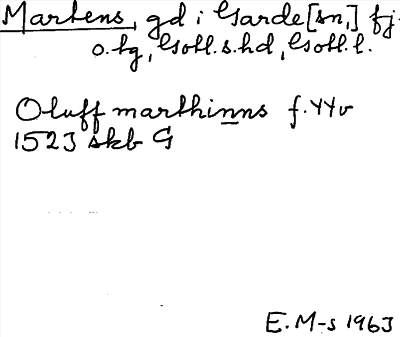 Martens, gd i Garde[sn,] fj.
o. tg, Gotl. s. hd, Gotl. l.
Oluff marthinns f. 44v
1523 skb G
E. M-s 1963